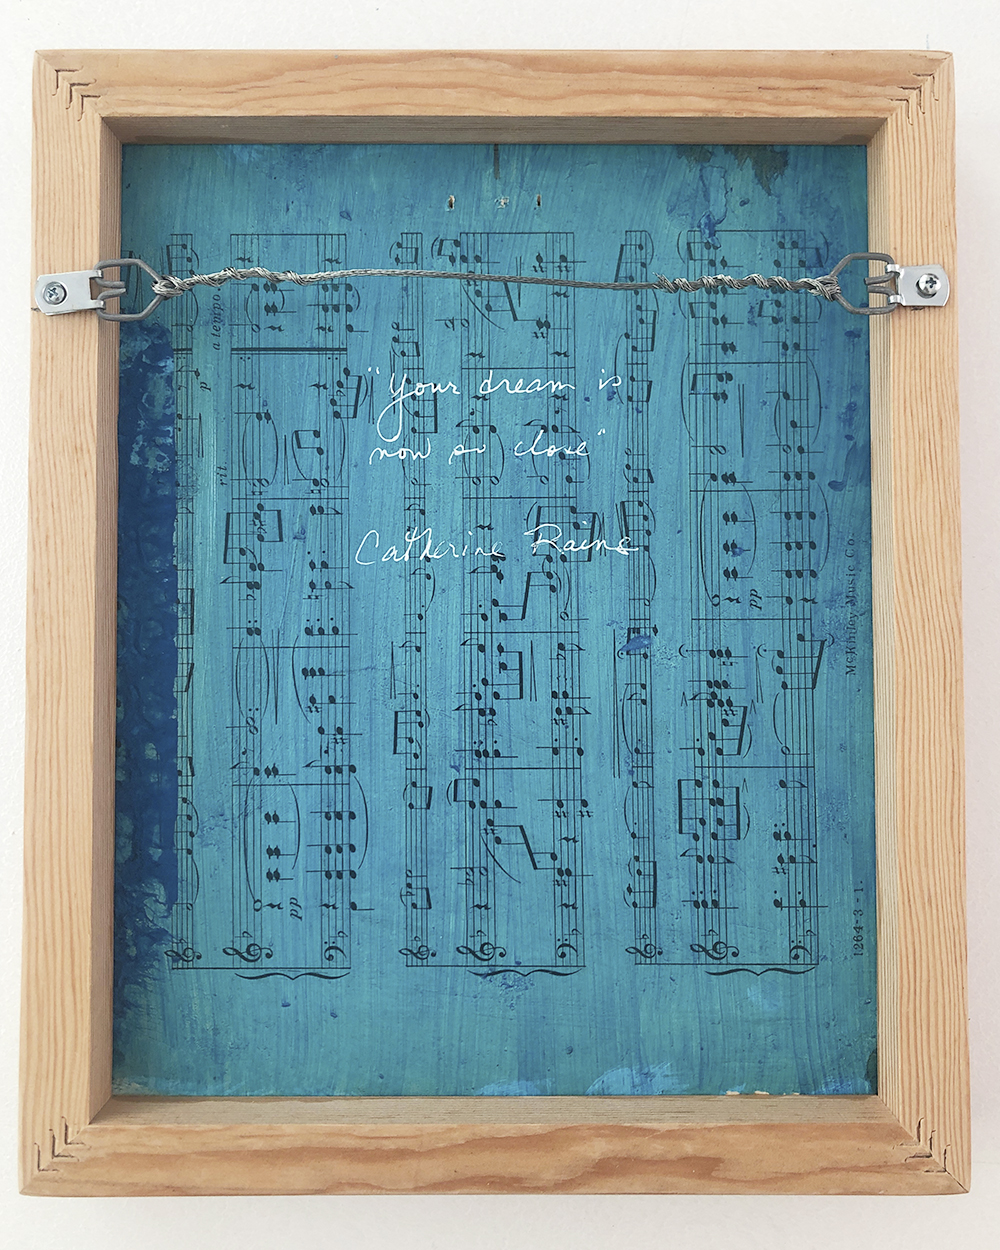 "Your dream is
now so close"
Catherine Rains
a tempo
rit.
pp
pp
McKinley Music Co.
1264-3-1.